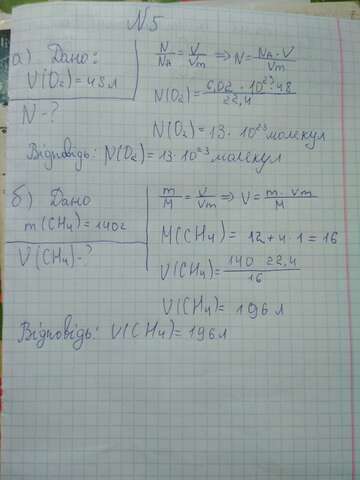 N5
а) Дано:
V(O₂) = 48л
N - ?
N/Nₐ = V/Vm ⇒ N = Nₐ · V/Vm
N(O₂) = 6,02 · 10²³ · 48/22,4
N(O₂) = 13 · 10²³ молекул
Відповідь: N(O₂) = 13 · 10²³ молекул
б) Дано
m(CH₄) = 140г
V(CH₄) - ?
m/M = V/Vm ⇒ V = m · Vm/M
M(CH₄) = 12 + 4 · 1 = 16
V(CH₄) = 140 · 22,4/16
V(CH₄) = 196 л
Відповідь: V(CH₄) = 196 л